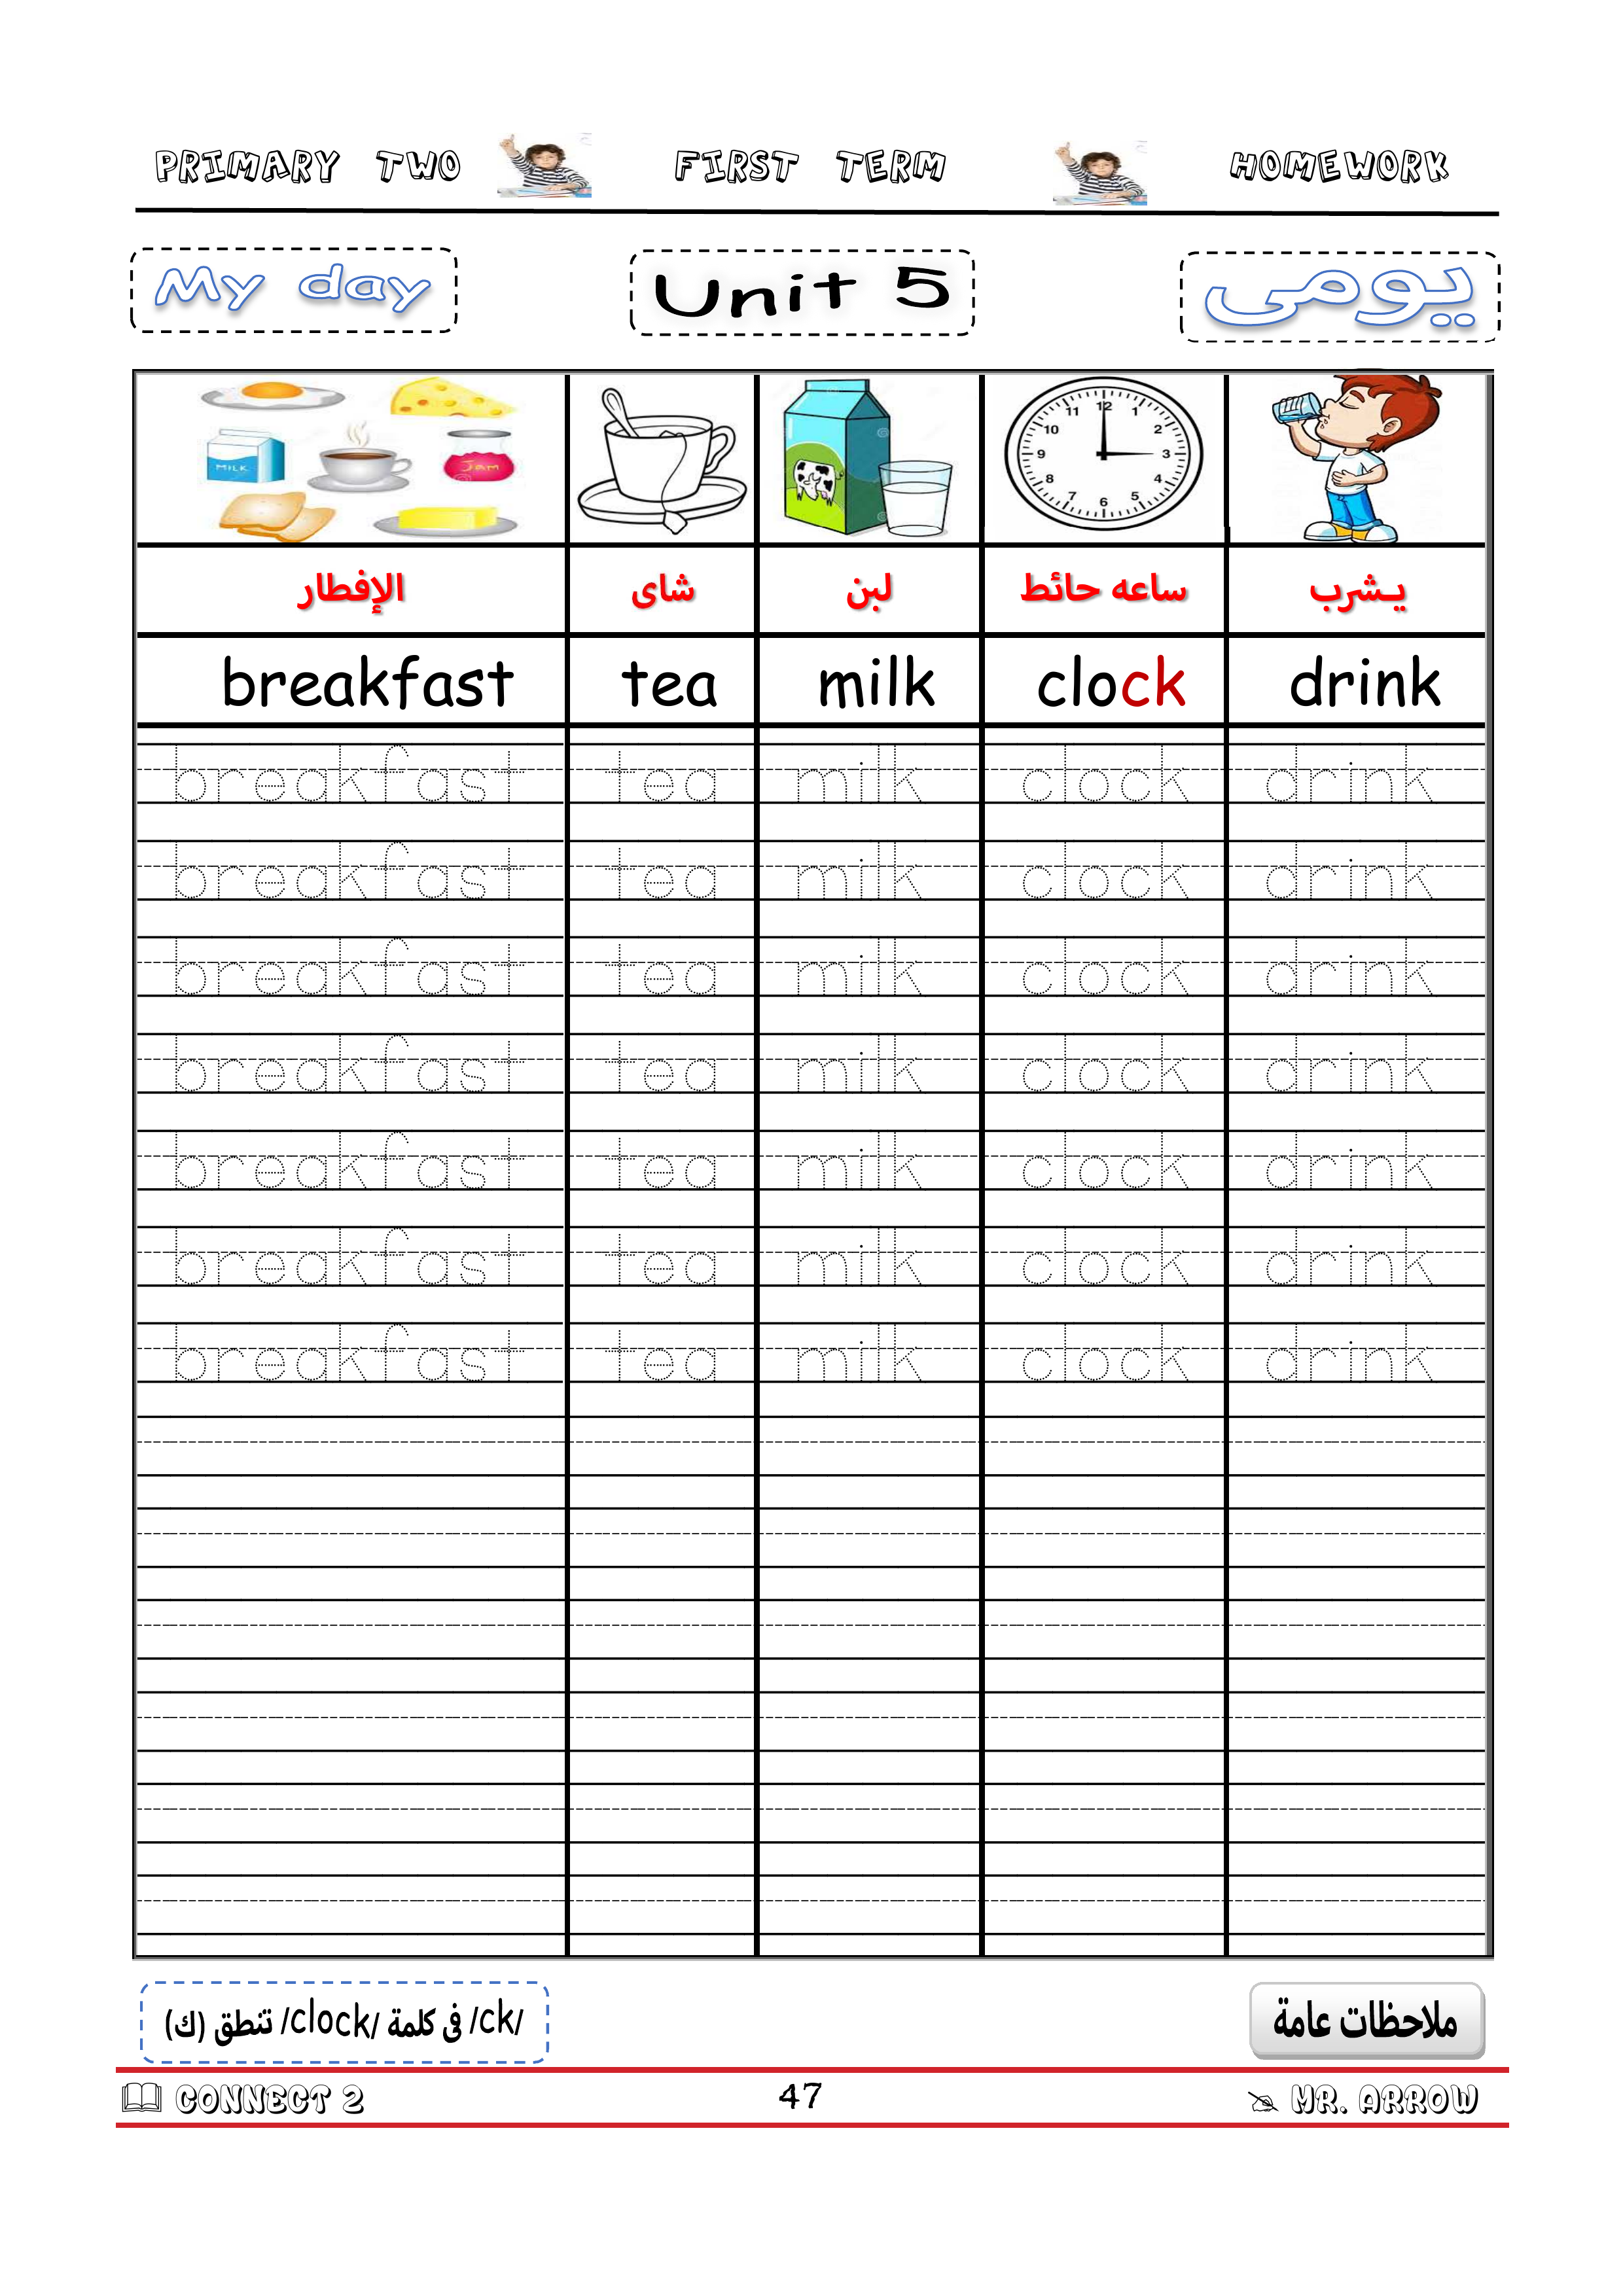 PRIMARY TWO FIRST TERM HOMEWORK
My day Unit 5 يومى
MILK
Jam
12 1 2 3 4 5 6 7 8 9 10 11
الإفطار شاى لبن ساعه حائط يـشرب
breakfast tea milk clock drink
breakfast tea milk clock drink
breakfast tea milk clock drink
breakfast tea milk clock drink
breakfast tea milk clock drink
breakfast tea milk clock drink
breakfast tea milk clock drink
breakfast tea milk clock drink
ملاحظات عامة
/ck/ فى كلمة /clock/ تنطق (ك)
CONNECT 2 47 MR. ARROW